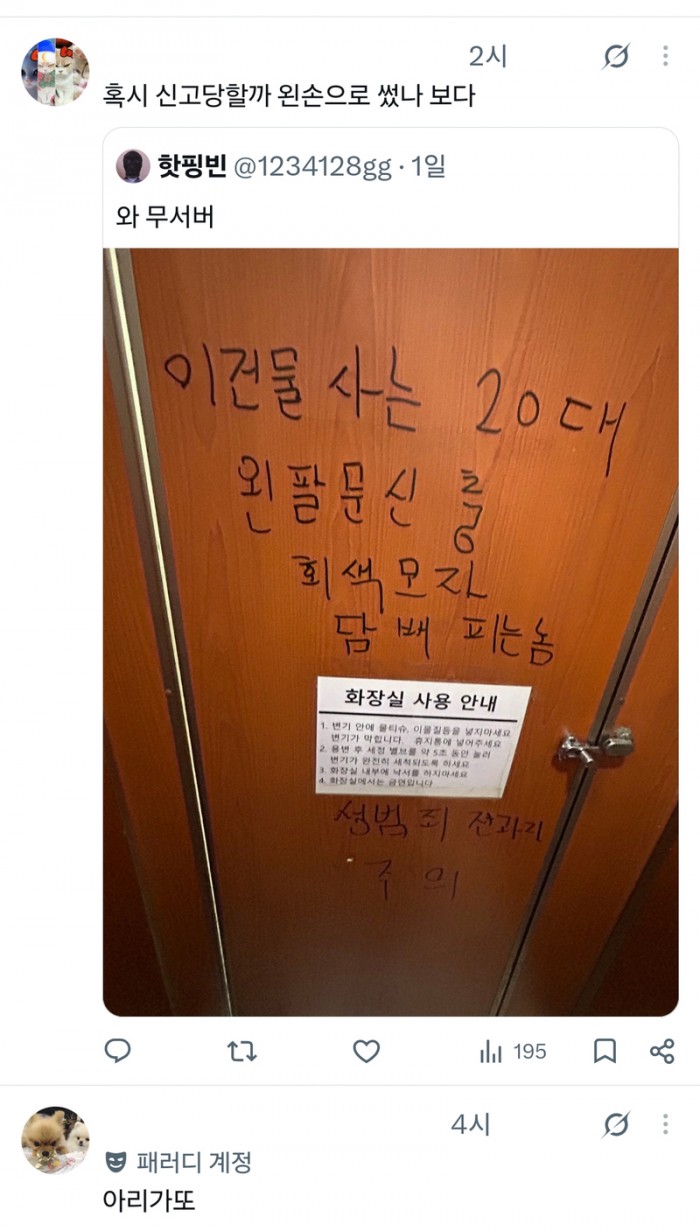 2시
혹시 신고당할까 왼손으로 썼나 보다
핫핑빈 @1234128gg · 1일
와 무서버
이건물 사는 20대
왼팔문신 흉
회색모자
담배 피는놈
화장실 사용 안내
1. 변기 안에 물티슈, 이물질등을 넣지마세요
변기가 막힙니다. 휴지통에 넣어주세요
2. 용변 후 세정 밸브를 약 5초 동안 눌러
변기가 완전히 세척되도록 하세요
3. 화장실 내부에 낙서를 하지마세요
4. 화장실에서는 금연입니다
성범죄 전과자
주의
195
4시
패러디 계정
아리가또